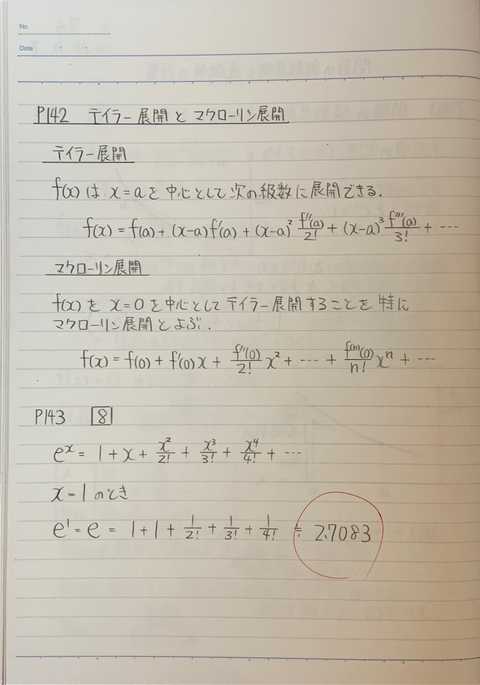 No.
Date
P142 テイラー展開とマクローリン展開
テイラー展開
f(x) は x=a を中心として次の級数に展開できる.
f(x) = f(a) + (x-a)f'(a) + (x-a)² f''(a)/2! + (x-a)³ f'''(a)/3! + ⋯
マクローリン展開
f(x) を x=0 を中心としてテイラー展開することを特に
マクローリン展開とよぶ.
f(x) = f(0) + f'(0)x + f''(0)/2! x² + ⋯ + f⁽ⁿ⁾(0)/n! xⁿ + ⋯
P143 8
eˣ = 1 + x + x²/2! + x³/3! + x⁴/4! + ⋯
x=1 のとき
e¹ = e = 1 + 1 + 1/2! + 1/3! + 1/4! ≒ 2.7083